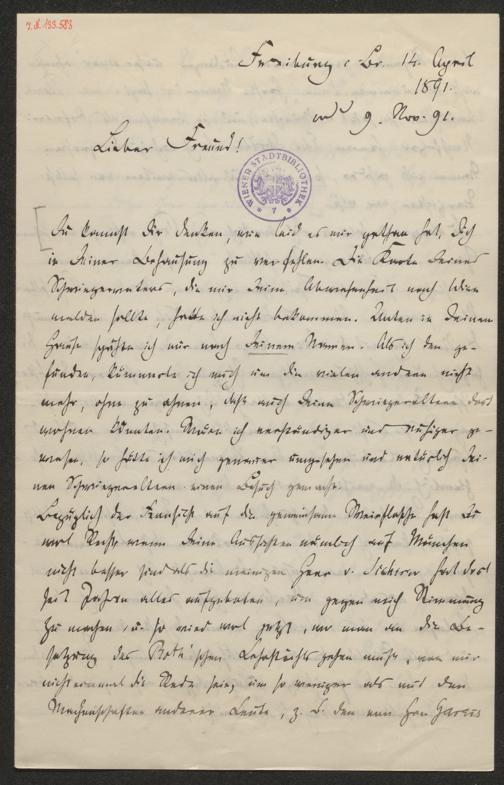 J.N. 133.583
Freiburg i Br. 14. April
1891.
9. Nov. 91.
Lieber Freund!
WIENER STADTBIBLIOTHEK
Du kannst Dir denken, wie leid es mir gethan hat, Dich
in Deiner Behausung zu verfehlen. Die Karte Deines
Schwiegervaters, die mir Deine Abwesenheit nach Wien
melden sollte, hatte ich nicht bekommen. Unten in Deinem
Hause spähte ich nur nach Deinem Namen. Als ich den ge-
funden, kümmerte ich mich um die vielen andern nicht
mehr, ohne zu ahnen, daß auch Deine Schwiegereltern dort
wohnen könnten. Wäre ich verständiger und ruhiger ge-
wesen, so hätte ich mich genauer umgesehen und natürlich Dei-
nen Schwiegereltern einen Besuch gemacht.
Bezüglich der Aussicht auf die gemeinsame hast Du
wol Recht wenn Deine Aussichten nämlich auf München
nicht besser sind als die meinigen Herr v. Sicherer hat dort
seit Jahren alles aufgeboten, um gegen mich Stimmung
zu machen, u. so wird wol jetzt, wo man an die Be-
setzung des Roth'schen Lehrstuhls gehen muß, von mir
nicht einmal die Rede sein, um so weniger als auch den
Machenschaften anderer Leute, z. B. den von Hrn Gareis